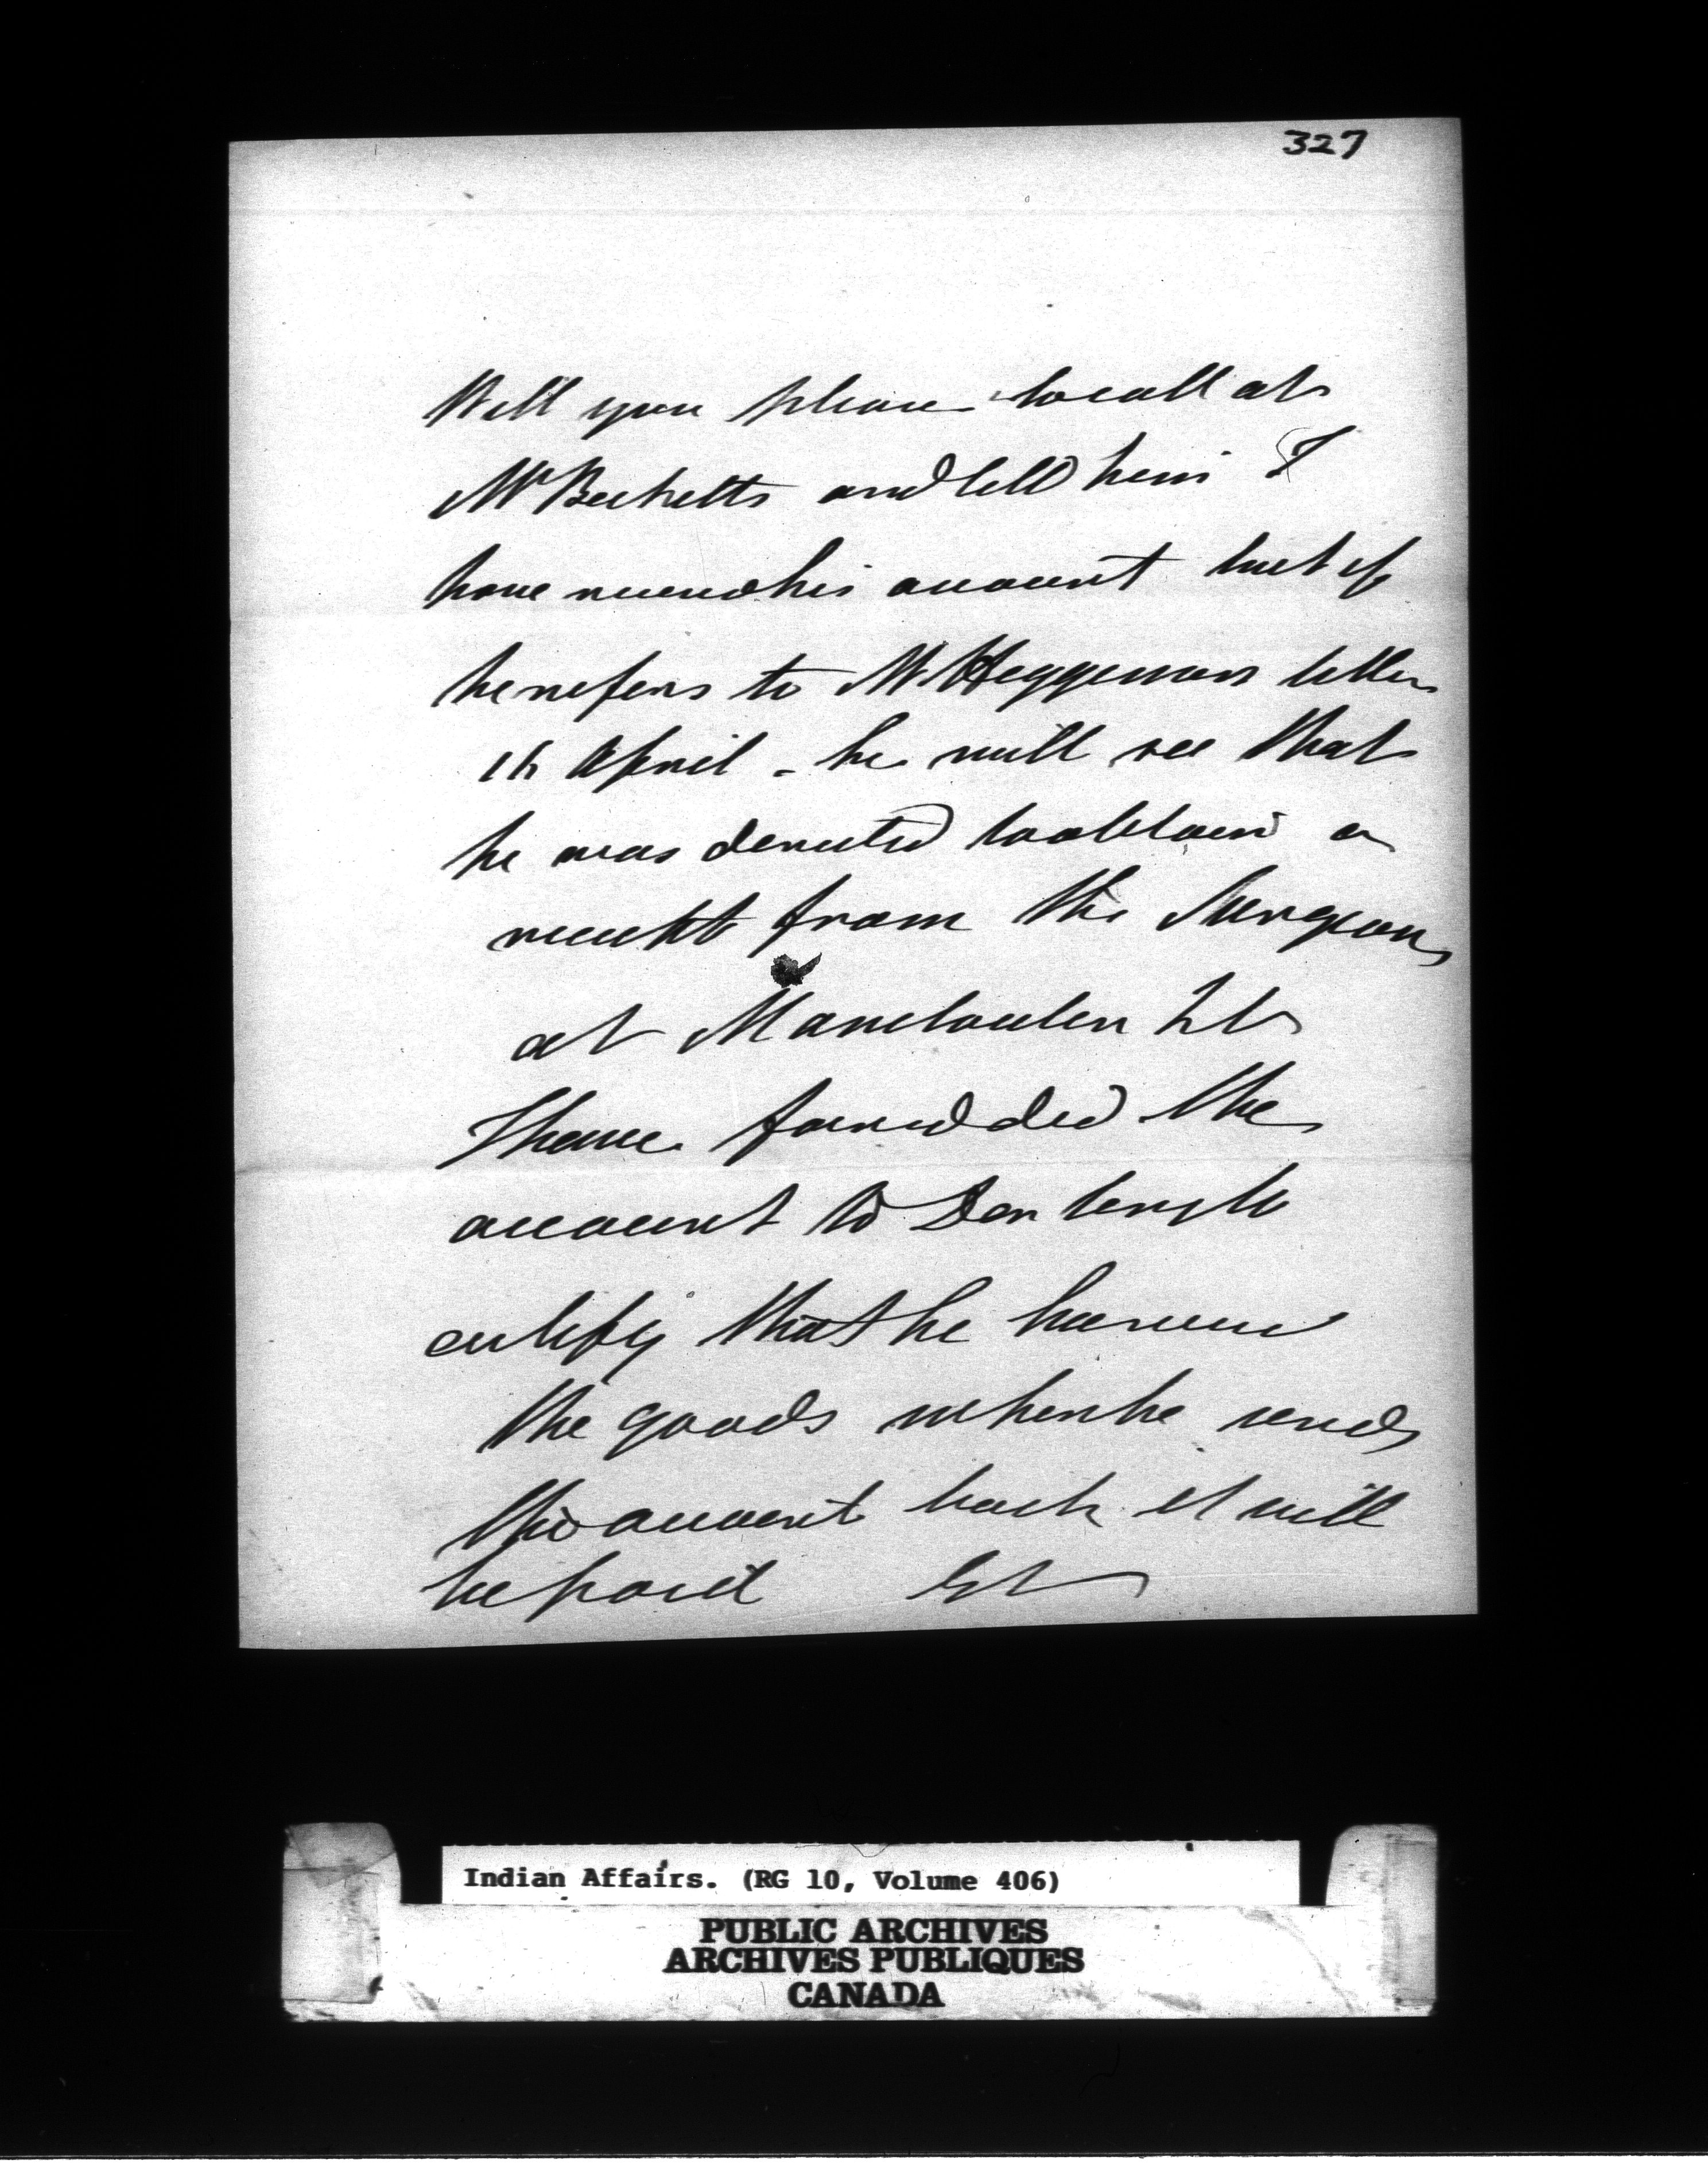 327
Will you please to call at
Mr Becketts and tell him I
have received his account but if
he refers to Mr Heggemans letter
16 April - he will see that
he was directed to obtain a
receipt from the Surgeon
at Manitoulin
I have forwdded the
account to Layton to
certify that he has recd
the goods when he sends
the account back it will
be paid
Indian Affairs. (RG 10, Volume 406)
PUBLIC ARCHIVES
ARCHIVES PUBLIQUES
CANADA